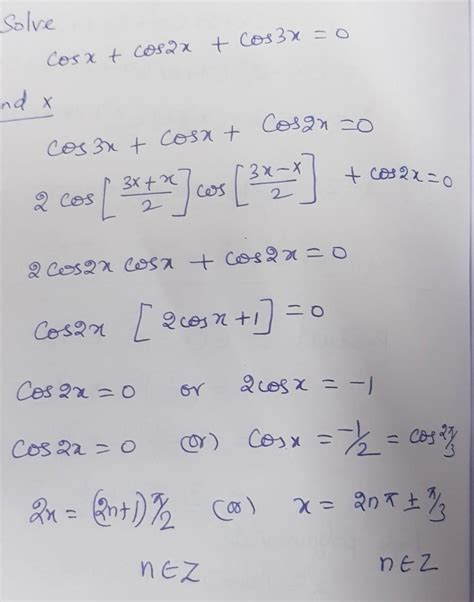 Solve
cosx + cos2x + cos3x = 0
nd x
cos3x + cosx + cos2x = 0
2 cos[(3x+x)/2] cos[(3x-x)/2] + cos2x = 0
2cos2x cosx + cos2x = 0
cos2x [2cosx + 1] = 0
cos2x = 0 or 2cosx = -1
cos2x = 0 (or) cosx = -1/2 = cos 2π/3
2x = (2n+1) π/2 (or) x = 2nπ ± π/3
n∈Z n∈Z